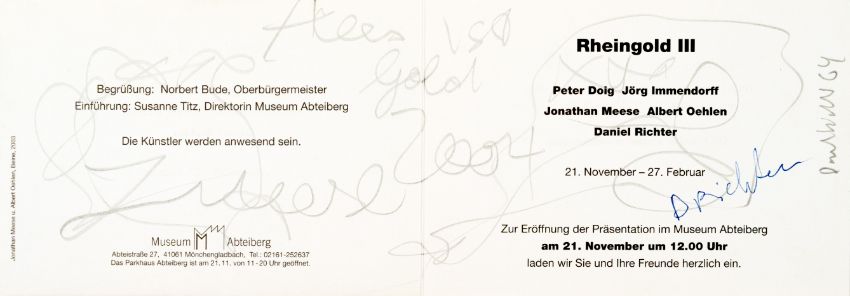 Jonathan Meese u. Albert Oehlen, Beine, 2003
Begrüßung: Norbert Bude, Oberbürgermeister
Einführung: Susanne Titz, Direktorin Museum Abteiberg
Die Künstler werden anwesend sein.
Museum Abteiberg
Abteistraße 27, 41061 Mönchengladbach, Tel.: 02161-252637
Das Parkhaus Abteiberg ist am 21.11. von 11-20 Uhr geöffnet.
ist
Gold
2004
Rheingold III
Peter Doig Jörg Immendorff
Jonathan Meese Albert Oehlen
Daniel Richter
21. November – 27. Februar
D Richter
Zur Eröffnung der Präsentation im Museum Abteiberg
am 21. November um 12.00 Uhr
laden wir Sie und Ihre Freunde herzlich ein.